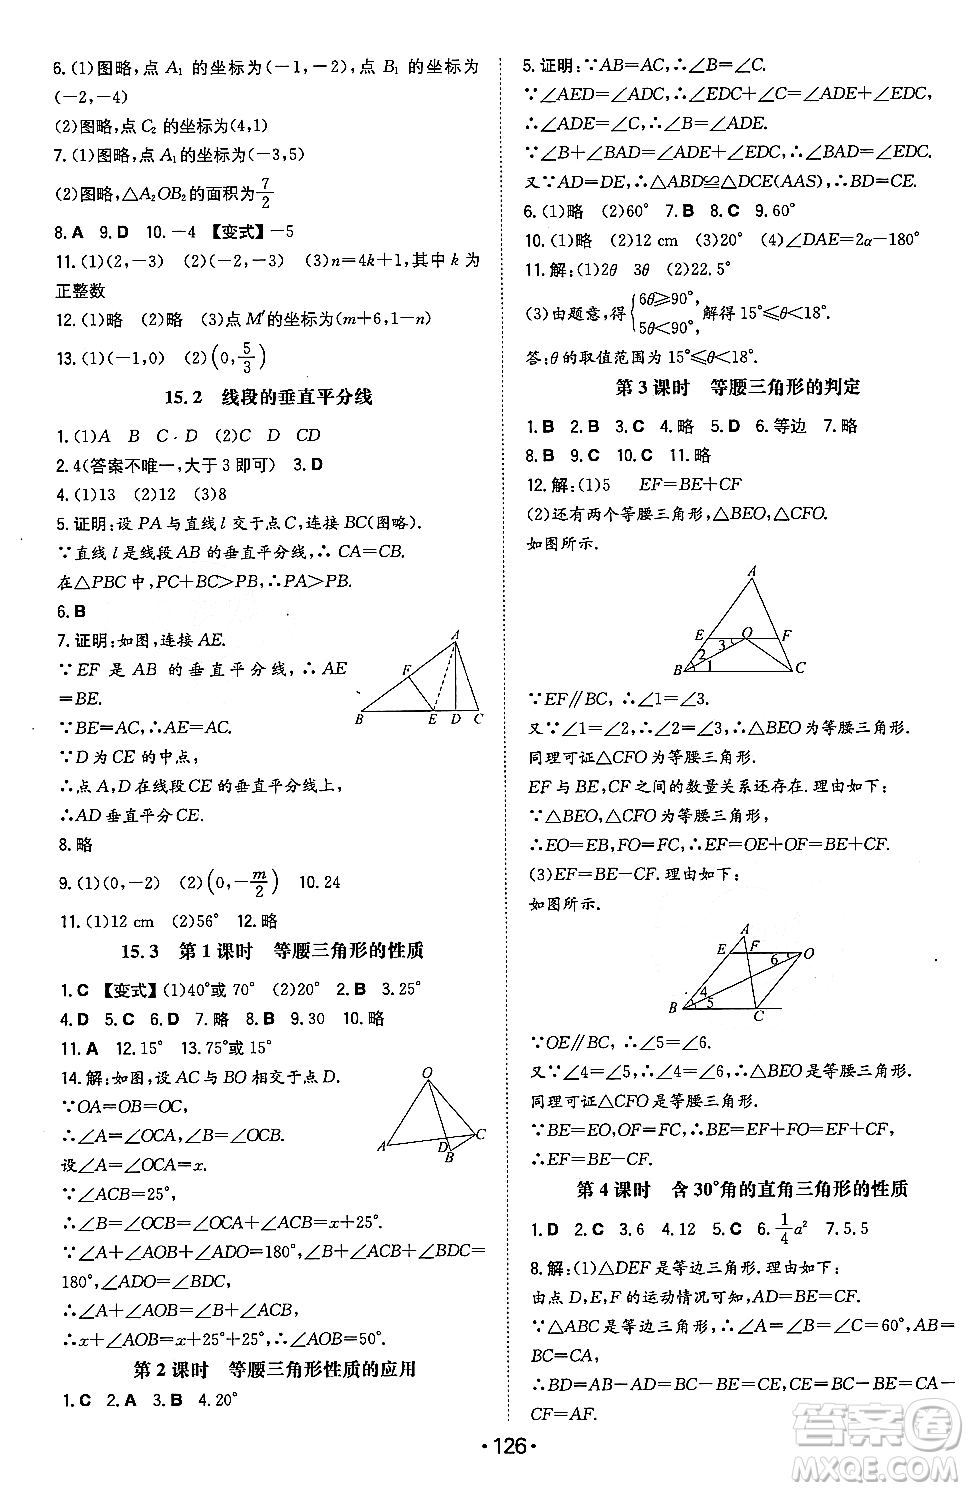 6.(1)图略,点 A₁ 的坐标为(-1,-2),点 B₁ 的坐标为
(-2,-4)
(2)图略,点C₂的坐标为(4,1)
7.(1)图略,点A₁的坐标为(-3,5)
(2)图略,△A₂OB₂的面积为7/2
8.A 9.D 10.-4 【变式】-5
11.(1)(2,-3) (2)(-2,-3) (3)n=4k+1,其中 k 为
正整数
12.(1)略 (2)略 (3)点M′的坐标为(m+6,1-n)
13.(1)(-1,0) (2)(0,5/3)
15.2 线段的垂直平分线
1.(1)A B C D (2)C D CD
2.4(答案不唯一,大于3即可) 3.D
4.(1)13 (2)12 (3)8
5.证明:设PA与直线l交于点C,连接BC(图略).
∵直线l是线段AB的垂直平分线,∴CA=CB.
在△PBC中,PC+BC>PB,∴PA>PB.
6.B
7.证明:如图,连接AE.
∵EF 是 AB 的垂直平分线,∴AE
=BE.
∵BE=AC,∴AE=AC.
∵D为CE的中点,
∴点A,D在线段CE的垂直平分线上,
∴AD垂直平分CE.
A
F
B E D C
8.略
9.(1)(0,-2) (2)(0,-m/2) 10.24
11.(1)12 cm (2)56° 12.略
15.3 第1课时 等腰三角形的性质
1.C 【变式】(1)40°或70° (2)20° 2.B 3.25°
4.D 5.C 6.D 7.略 8.B 9.30 10.略
11.A 12.15° 13.75°或15°
14.解:如图,设AC与BO相交于点D.
∵OA=OB=OC,
∴∠A=∠OCA,∠B=∠OCB.
设∠A=∠OCA=x.
∵∠ACB=25°,
∴∠B=∠OCB=∠OCA+∠ACB=x+25°.
∵∠A+∠AOB+∠ADO=180°,∠B+∠ACB+∠BDC=
180°,∠ADO=∠BDC,
∴∠A+∠AOB=∠B+∠ACB,
∴x+∠AOB=x+25°+25°,∴∠AOB=50°.
O
A
D
B
C
第2课时 等腰三角形性质的应用
1.C 2.A 3.B 4.20°
5.证明:∵AB=AC,∴∠B=∠C.
∵∠AED=∠ADC,∴∠EDC+∠C=∠ADE+∠EDC,
∴∠C=∠ADE,∴∠B=∠ADE.
∵∠B+∠BAD=∠ADE+∠EDC,∴∠BAD=∠EDC.
又∵AD=DE,∴△ABD≌△DCE(AAS),∴BD=CE.
6.(1)略 (2)60° 7.B 8.C 9.60°
10.(1)略 (2)12 cm (3)20° (4)∠DAE=2α-180°
11.解:(1)2θ 3θ (2)22.5°
(3)由题意,得{6θ≥90°, 5θ<90°, 解得15°≤θ<18°.
答:θ的取值范围为15°≤θ<18°.
第3课时 等腰三角形的判定
1.B 2.B 3.C 4.略 5.D 6.等边 7.略
8.B 9.C 10.C 11.略
12.解:(1)5 EF=BE+CF
(2)还有两个等腰三角形,△BEO,△CFO.
如图所示.
A
E O F
3
2
B 1 C
∵EF∥BC,∴∠1=∠3.
又∵∠1=∠2,∴∠2=∠3,∴△BEO为等腰三角形.
同理可证△CFO为等腰三角形.
EF与BE,CF之间的数量关系还存在.理由如下:
∵△BEO,△CFO为等腰三角形,
∴EO=EB,FO=FC,∴EF=OE+OF=BE+CF.
(3)EF=BE-CF.理由如下:
如图所示.
A
E F O
6
4
5
B C
∵OE∥BC,∴∠5=∠6.
又∵∠4=∠5,∴∠4=∠6,∴△BEO为等腰三角形.
同理可证△CFO为等腰三角形.
∵BE=EO,OF=CF,∴BE=EF+FO=EF+CF,
∴EF=BE-CF.
第4课时 含30°角的直角三角形的性质
1.D 2.C 3.6 4.12 5.C 6.1/4a² 7.5.5
8.解:(1)△DEF是等边三角形.理由如下:
由点D,E,F的运动情况可知,AD=BE=CF.
∵△ABC是等边三角形,∴∠A=∠B=∠C=60°,AB=
BC=CA,
∴BD=AB-AD,CE=BC-BE,AF=CA-
CF=AF,
·126·
答案圈
MXQE.COM